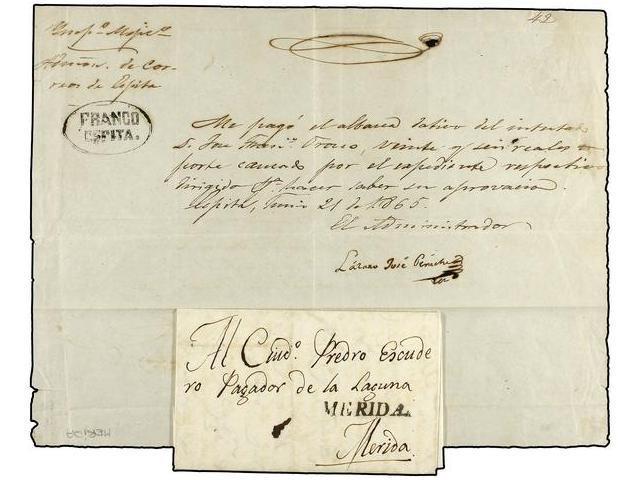 43
Admon. de Cor-
reos de Espita
FRANCO
ESPITA.
Me pagó el albacea dativo del intestado
D. José Fran.co , veinte y seis reales
porte causado por el espediente respectivo
dirigido pa. hacer saber su aprovacion.
Espita, Junio 21 de 1865.
El Administrador
Lázaro José Peniche
Al Ciud.o Predro Escude
ro Pagador de la Laguna
MERIDA.
Merida